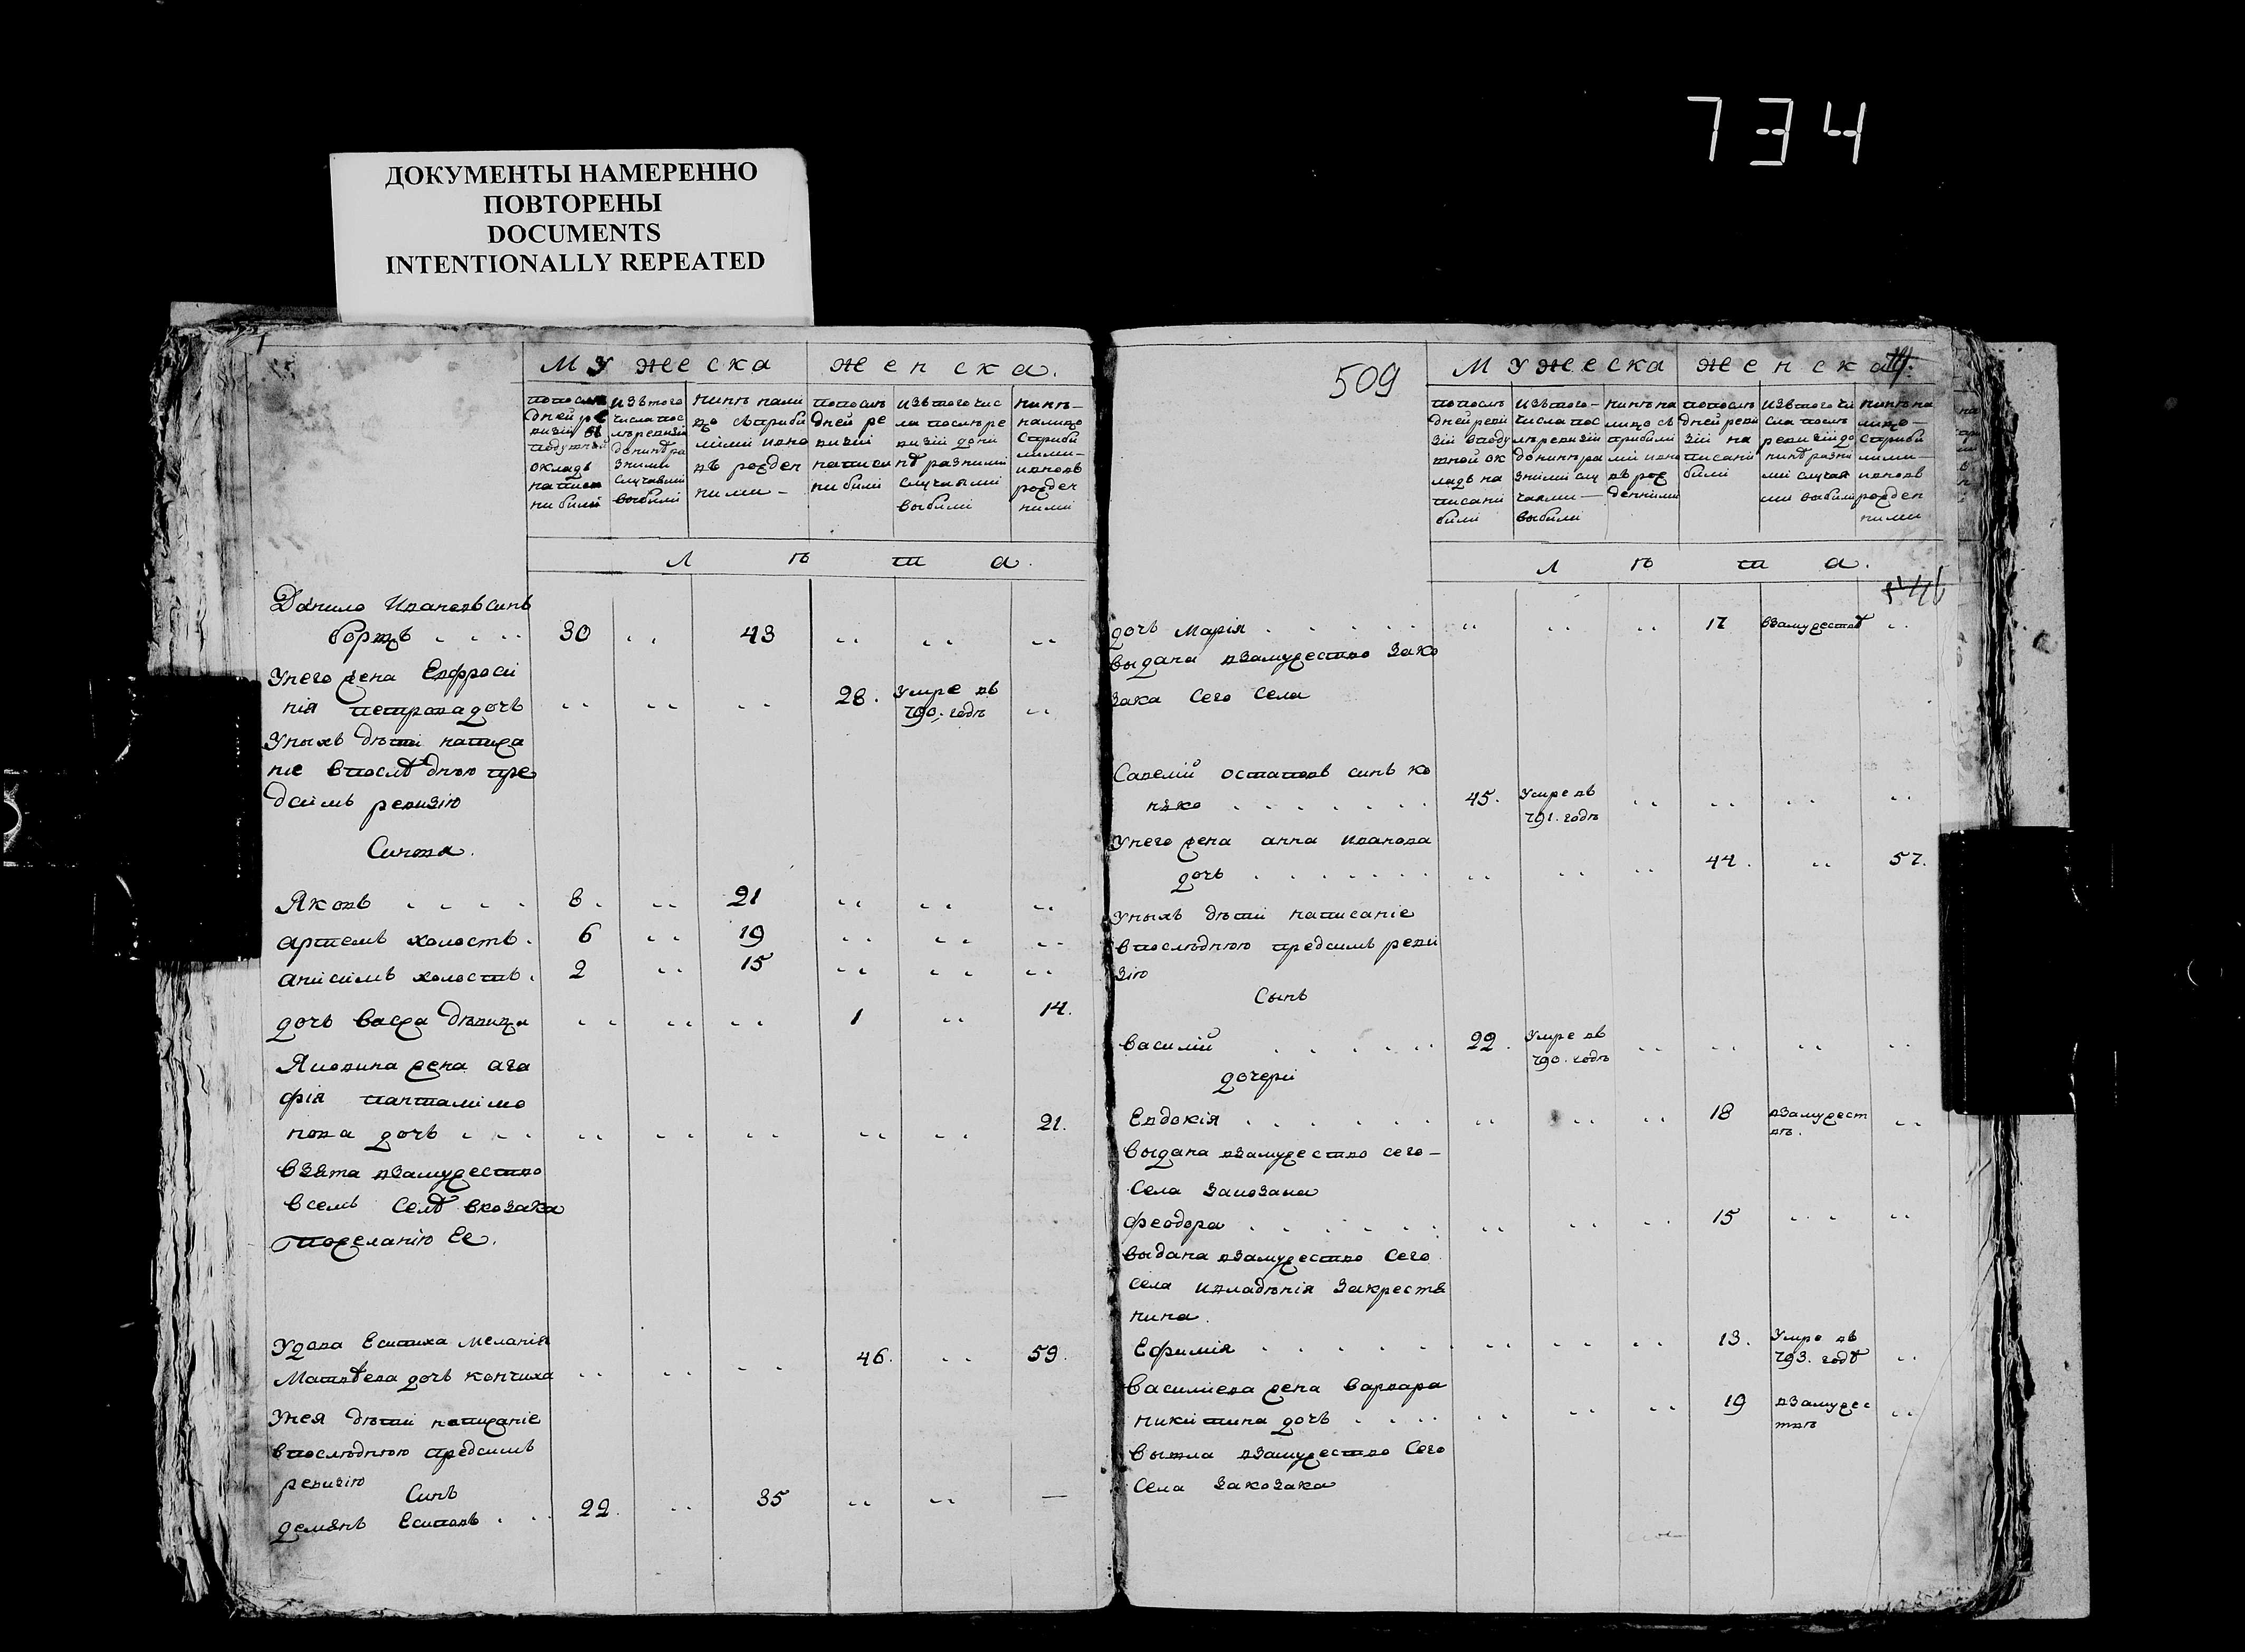 734
ДОКУМЕНТЫ НАМЕРЕННО
ПОВТОРЕНЫ
DOCUMENTS
INTENTIONALLY REPEATED
Мужеска Женска.
попослѣ
дней ре
визіи въ
подушной
окладъ
написа
ни били
изътого
числа пос
лѣ ревизіи
донинѣ ра
зними
случаями
выбили
нинѣ нали
цо съприби
лими ивно
въ рожден
ними -
попослѣ
дней ре
визіи
написа
ни били
изътого чис
ла послѣ ре
визіи дони
нѣ разними
случаями
выбили
нинѣ-
налицо
сприби
лими-
ивновъ
рожден
ними
Л ѣ т а.
Данило Ивановъ синъ
борщъ 30 .. 43 .. .. ..
Унего жена Евфроси
нія петрова дочь .. .. .. 28. Умре въ 790. годѣ ..
Уныхъ дѣти написа
ніе впослѣднюю пре
дсимъ ревизію
Синовя.
Яковъ 8. .. 21 .. .. ..
артемъ холостъ. 6 .. 19 .. .. ..
анисимъ холостъ. 2 .. 15 .. .. ..
дочь васса дѣвица .. .. .. 1 .. 14.
Яковина жена ага
фія панталимо
нова дочь .. .. .. .. .. 21.
Взята взамужество
всемъ селѣ вкозака
пожеланію Ее.
Удова Есипиха меланія
Матвѣева дочь кончиха .. .. .. 46. .. 59.
Унея дѣти написаніе
впослѣднюю предсимъ
ревизію
Синъ
демянъ Есиповъ 22. .. 35 .. .. —
509
Мужеска Женска
попослѣ
дней реви
зіи вподу
шной ок
ладъ на
писани
били
изътого-
числа пос
лѣ ревизіи
донинѣ ра
зними слу
чаями—
выбили
нинѣ на
лицо съ
прибили
ми ивно
въ рож
денними
попослѣ
дней реви
зіи на
писани
били
изътого чи
сла послѣ
ревизіи до
нинѣ разни
ми случая
ми выбили
нинѣ на
лицо—
сприби
лими—
ивновъ
рожден
ними
Л ѣ т а.
дочь Марія .. .. .. 17 взамужествѣ ..
выдана взамужество зако
зака сего села
Савелій остаповъ синъ ко
45. Умре въ 791. годѣ .. .. .. ..
Унего жена анна иванова
дочь .. .. .. 44. .. 57.
Уныхъ дѣти написаніе
впослѣднюю предсимъ реви
зію
Сынъ
василій 22. Умре въ 790. годѣ .. .. .. ..
дочери
Евдокія .. .. .. 18 взамужест вѣ. ..
выдана взамужество сего—
села закозака
феодора .. .. .. 15 .. ..
выдана взамужество сего
села ивладѣнія закрестя
нина.
Ефимія .. .. .. 13. Умре въ 793. годѣ ..
василиева жена варвара
никитина дочь .. .. .. 19 взамужес твѣ ..
вышла взамужество сего
села закозака